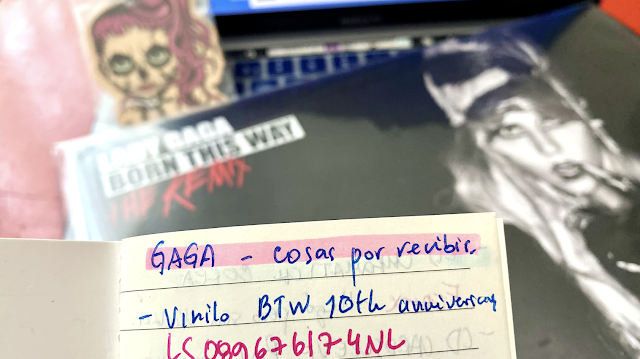 LADY GAGA
BORN THIS WAY
THE REMIX
GAGA - cosas por recibir.
- Vinilo BTW 10th anniversary
LS089676174NL